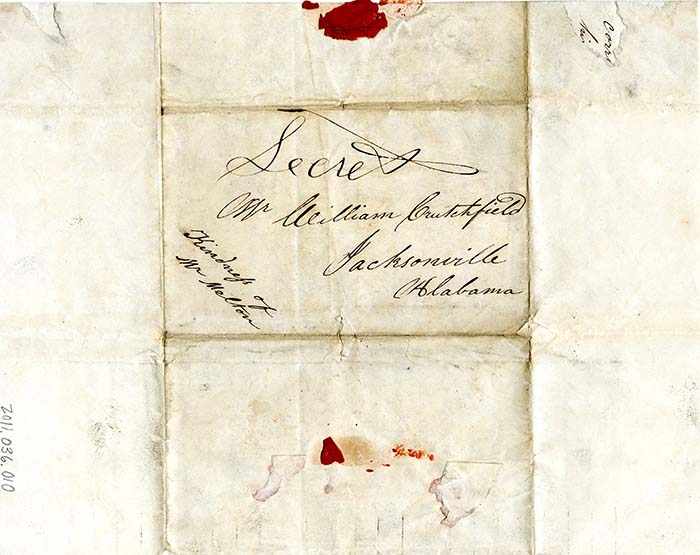 Secret
Mr William Crutchfield
Jacksonville
Alabama
Kindness of
Mr Melton
2011.036.010